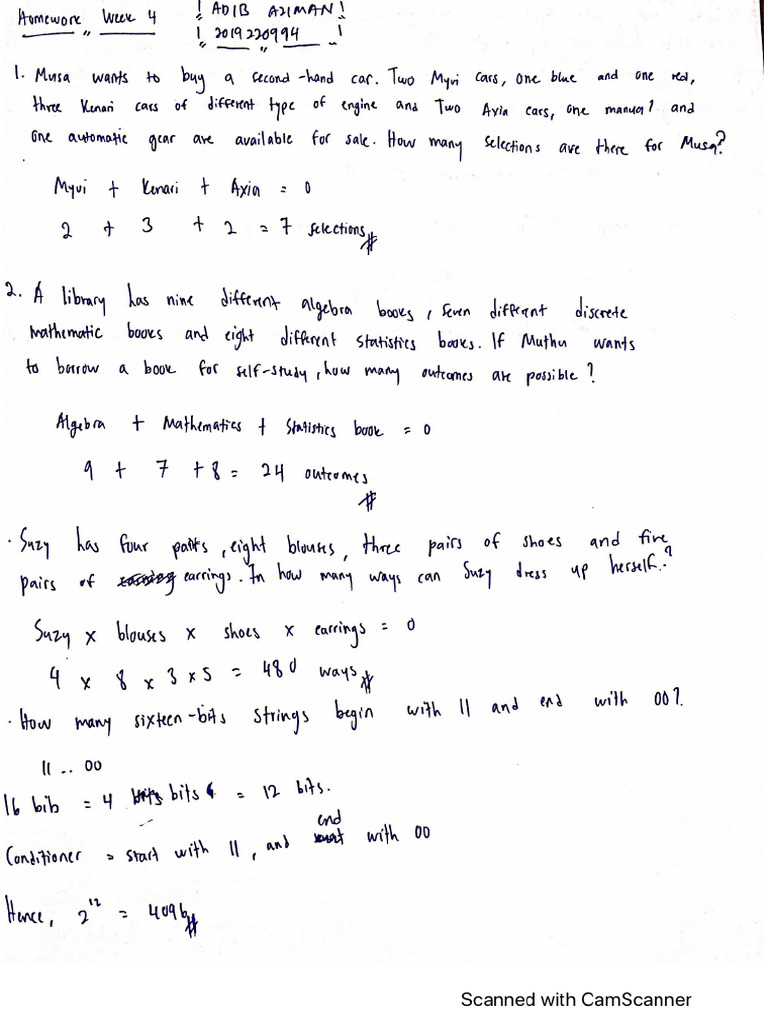 Homework Week 4
! ADIB AZIMAN !
! 2019220994 !
1. Musa wants to buy a second-hand car. Two Myvi cars, one blue and one red,
three Kenari cars of different type of engine and Two Axia cars, one manual and
one automatic gear are available for sale. How many selections are there for Musa?
Myvi + Kenari + Axia = 0
2 + 3 + 2 = 7 selections #
2. A library has nine different algebra books, seven different discrete
mathematic books and eight different statistics books. If Muthu wants
to borrow a book for self-study, how many outcomes are possible?
Algebra + Mathematics + Statistics book = 0
9 + 7 + 8 = 24 outcomes
#
. Suzy has four pants, eight blouses, three pairs of shoes and five
pairs of earrings. In how many ways can Suzy dress up herself?
Suzy x blouses x shoes x earrings = 0
4 x 8 x 3 x 5 = 480 ways #
. How many sixteen-bits strings begin with 11 and end with 00?
11 .. 00
16 bib = 4 bits = 12 bits.
Conditioner = start with 11, and end with 00
Hence, 2^12 = 4096 #
Scanned with CamScanner